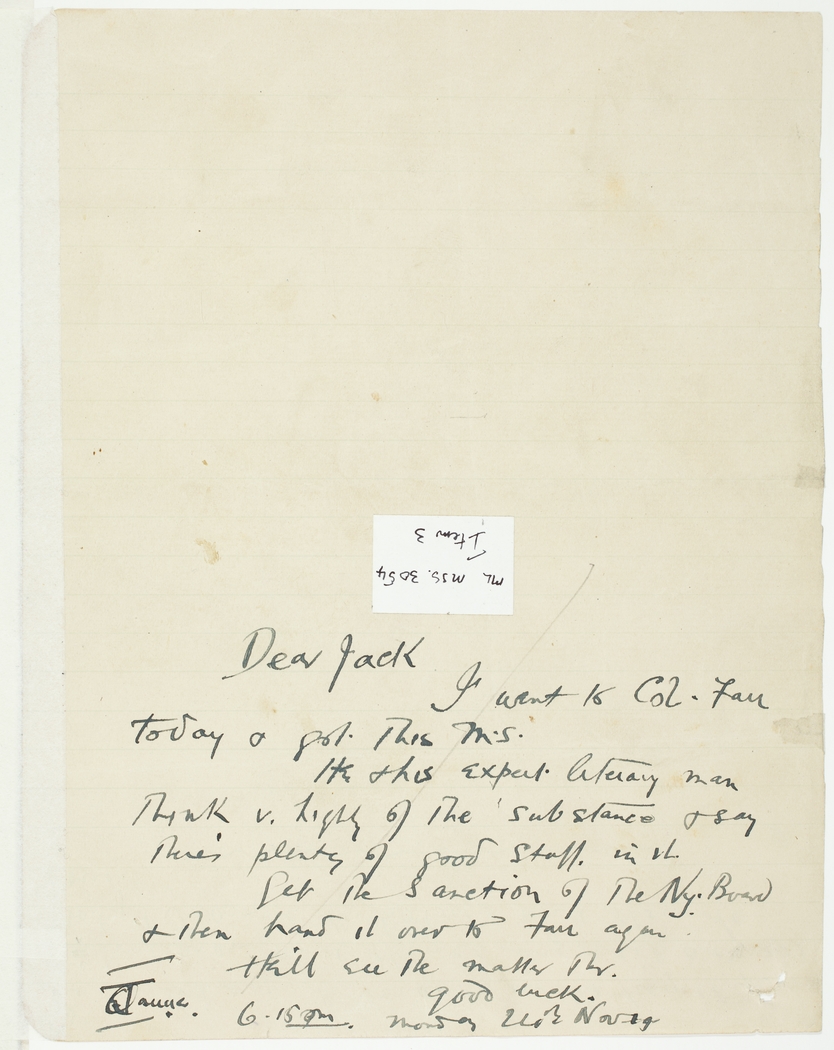 ML MSS. 3054
Item 3
Dear Jack
I went to Col. Farr
Today & got this M.S.
He & his expert literary man
Think v. highly of the 'substance & say
There's plenty of good stuff. in it.
Get the Sanction of the Ny. Board
& then hand it over to Farr again.
He'll see the matter thr.
good luck.
6.15 pm. Monday Nov 19